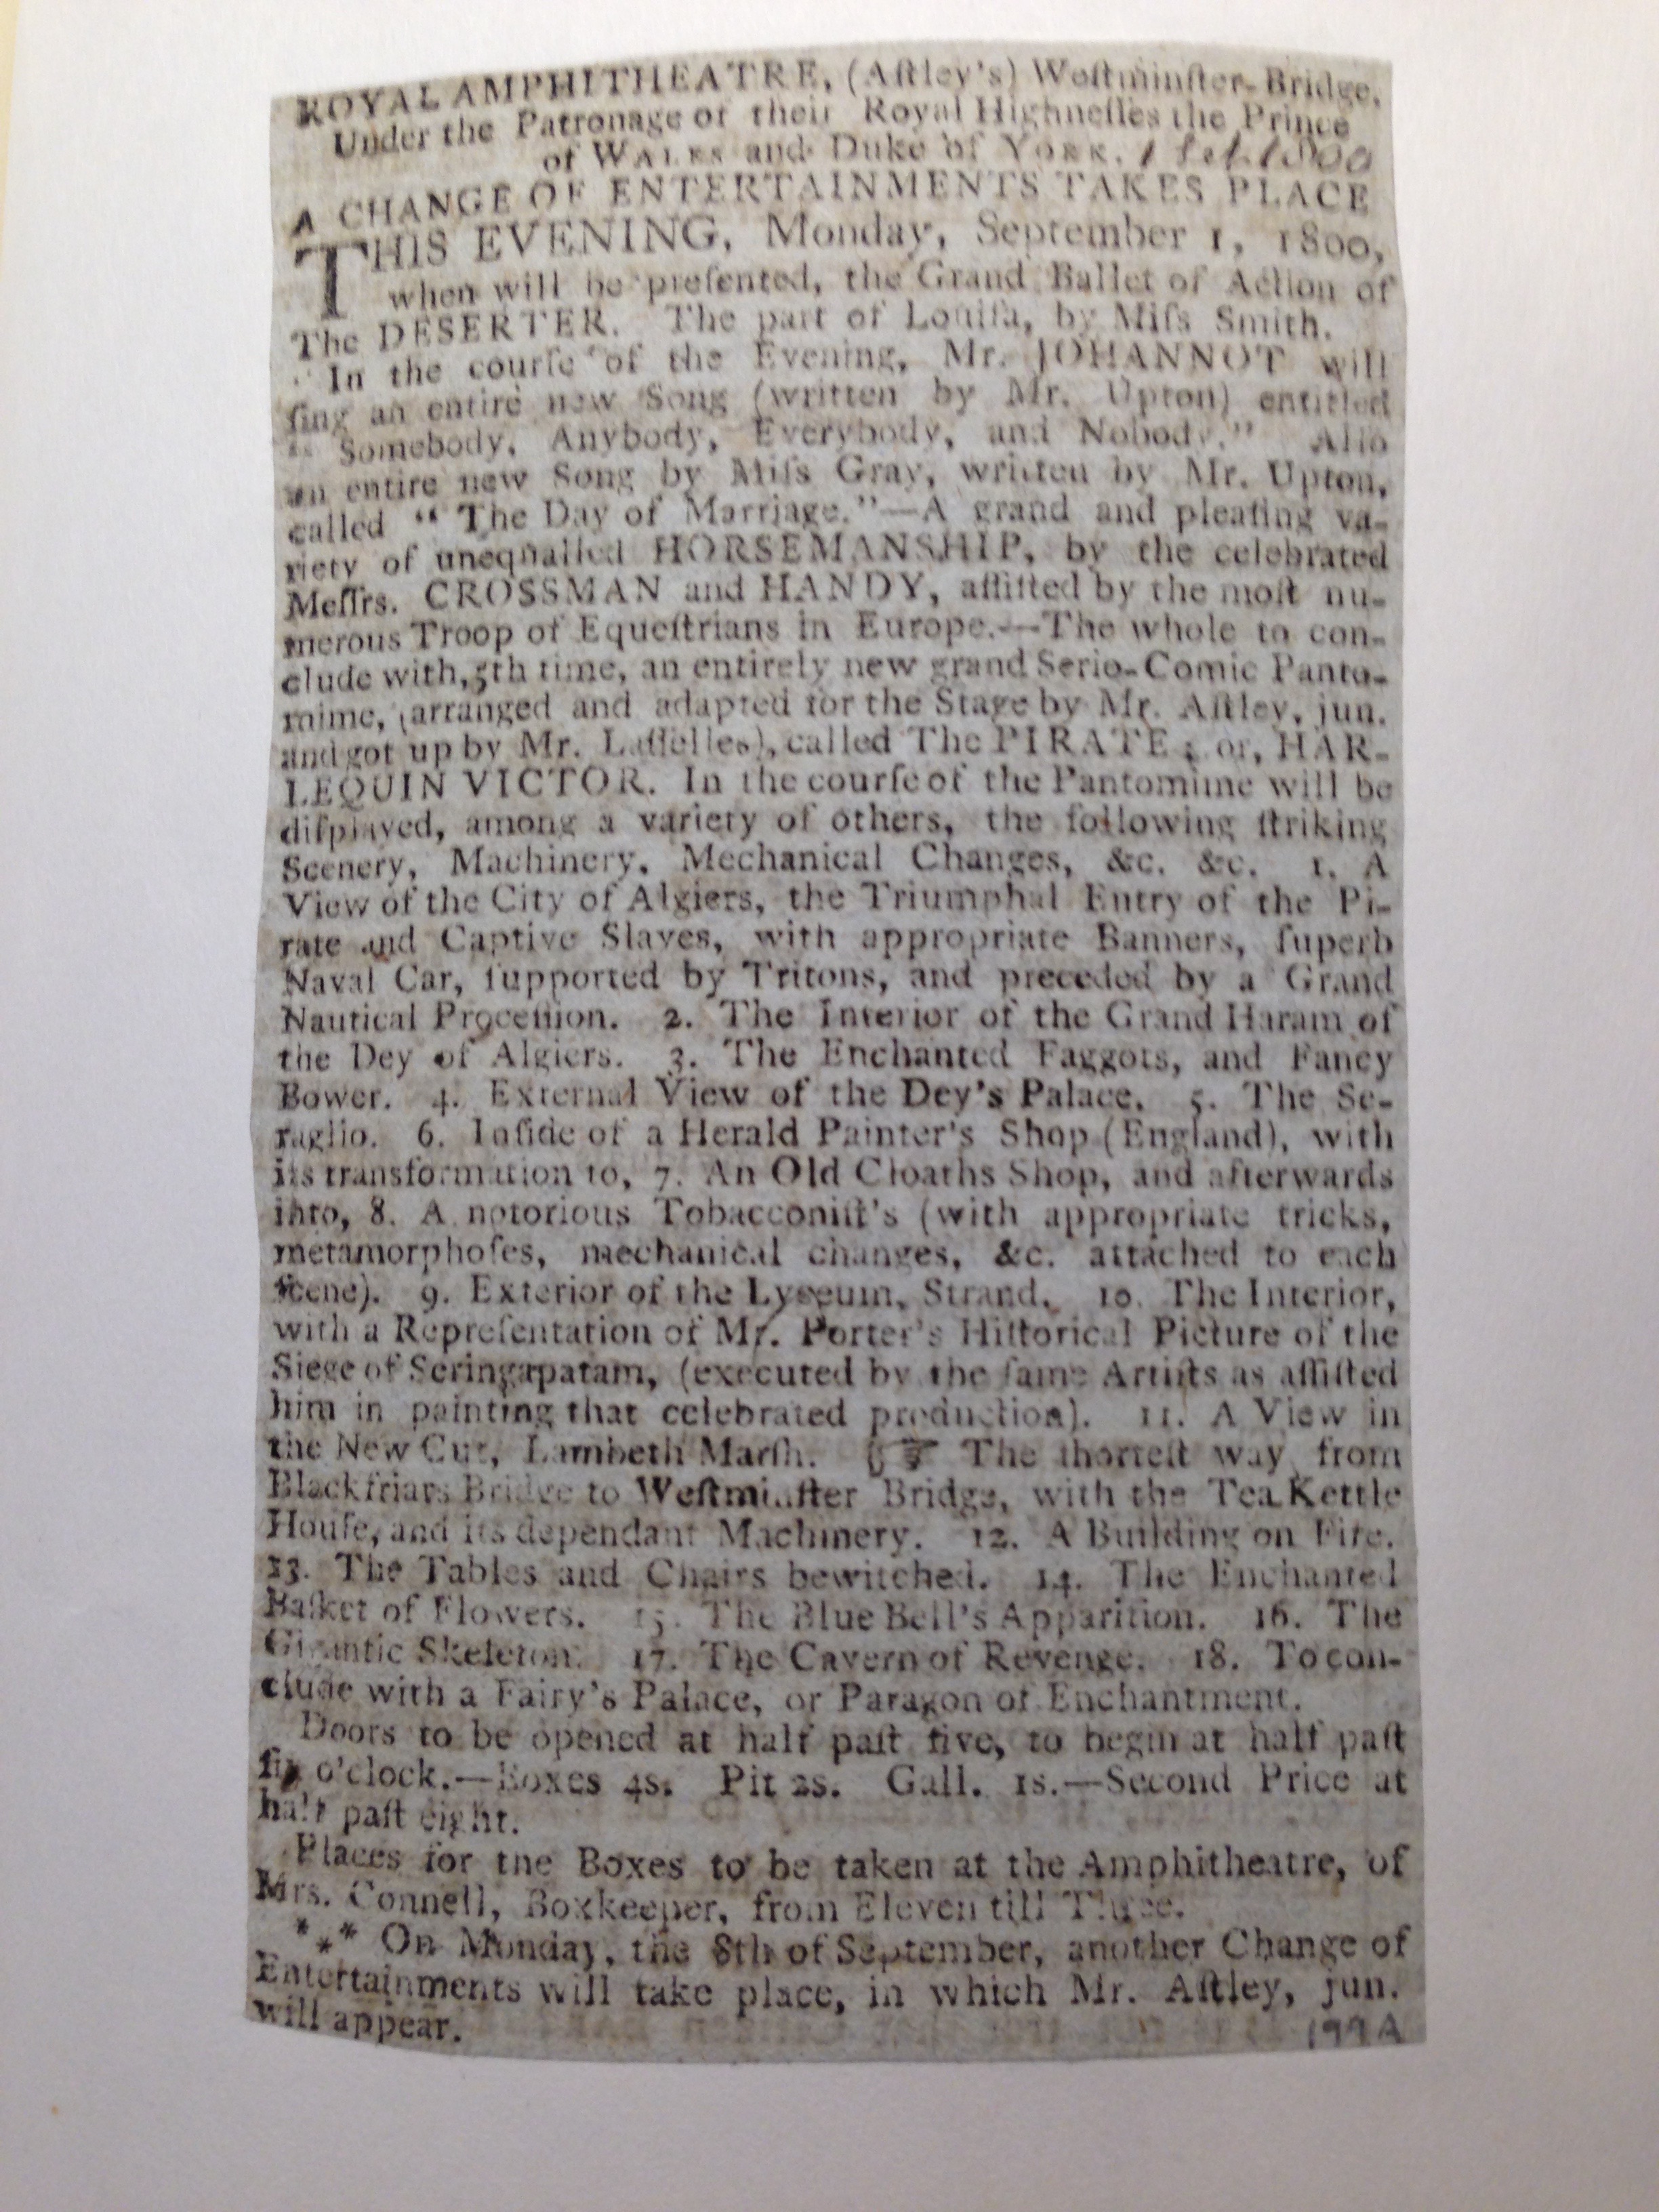 ROYAL AMPHITHEATRE, (Aſtley's) Weſtminſter-Bridge,
Under the Patronage of their Royal Highneſſes the Prince
of WALES and Duke of YORK. 1 Sep. 1800
A CHANGE OF ENTERTAINMENTS TAKES PLACE
THIS EVENING, Monday, September 1, 1800,
when will be preſented, the Grand Ballet of Action of
The DESERTER. The part of Louiſa, by Miſs Smith.
In the courſe of the Evening, Mr. JOHANNOT will
ſing an entire new Song (written by Mr. Upton) entitled
" Somebody, Anybody, Everybody, and Nobody." Alſo
an entire new Song by Miſs Gray, written by Mr. Upton,
called " The Day of Marriage."—A grand and pleaſing va-
riety of unequalled HORSEMANSHIP, by the celebrated
Meſſrs. CROSSMAN and HANDY, aſſiſted by the moſt nu-
merous Troop of Equeſtrians in Europe.—The whole to con-
clude with, 5th time, an entirely new grand Serio-Comic Panto-
mime, (arranged and adapted for the Stage by Mr. Aſtley, jun.
and got up by Mr. Laſſelles), called The PIRATE ; or, HAR-
LEQUIN VICTOR. In the courſe of the Pantomime will be
diſplayed, among a variety of others, the following ſtriking
Scenery, Machinery, Mechanical Changes, &c. &c. 1. A
View of the City of Algiers, the Triumphal Entry of the Pi-
rate and Captive Slaves, with appropriate Banners, ſuperb
Naval Car, ſupported by Tritons, and preceded by a Grand
Nautical Proceſſion. 2. The Interior of the Grand Haram of
the Dey of Algiers. 3. The Enchanted Faggots, and Fancy
Bower. 4. External View of the Dey's Palace. 5. The Se-
raglio. 6. Inſide of a Herald Painter's Shop (England), with
its transformation to, 7. An Old Cloaths Shop, and afterwards
into, 8. A notorious Tobacconiſt's (with appropriate tricks,
metamorphoſes, mechanical changes, &c. attached to each
ſcene). 9. Exterior of the Lyceum, Strand. 10. The Interior,
with a Repreſentation of Mr. Porter's Hiſtorical Picture of the
Siege of Seringapatam, (executed by the ſame Artiſts as aſſiſted
him in painting that celebrated production). 11. A View in
the New Cut, Lambeth Marſh. ☞ The ſhorteſt way from
Blackfriars Bridge to Weſtminſter Bridge, with the Tea Kettle
Houſe, and its dependant Machinery. 12. A Building on Fire.
13. The Tables and Chairs bewitched. 14. The Enchanted
Baſket of Flowers. 15. The Blue Bell's Apparition. 16. The
Gigantic Skeleton. 17. The Cavern of Revenge. 18. To con-
clude with a Fairy's Palace, or Paragon of Enchantment.
Doors to be opened at half paſt five, to begin at half paſt
ſix o'clock.—Boxes 4s. Pit 2s. Gall. 1s.—Second Price at
half paſt eight.
Places for the Boxes to be taken at the Amphitheatre, of
Mrs. Connell, Boxkeeper, from Eleven till Three.
*⁎* On Monday, the 8th of September, another Change of
Entertainments will take place, in which Mr. Aſtley, jun.
will appear.